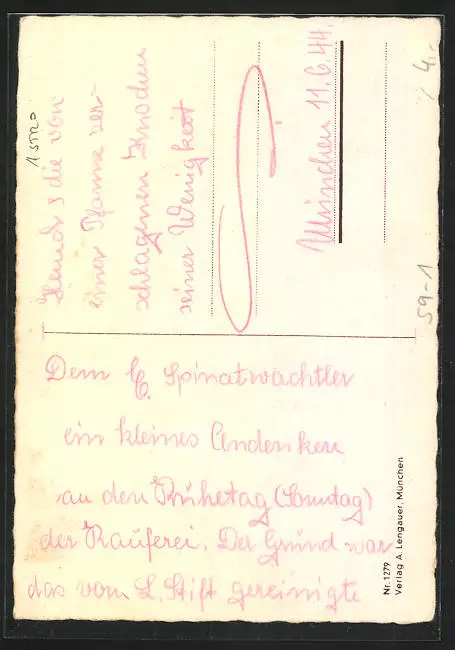 Dem E. Spinatwachtler
ein kleines Andenken
an den Ruhetag (Sonntag)
der Rauferei. Der Grund war
das vom L. Stift gereinigte
Hemd & die von
einer Pfanne zer-
schlagenen Knochen
seiner Wenigkeit
München 11.6.44.
Nr. 1279
Verlag A. Lengauer, München
59-1
4.-